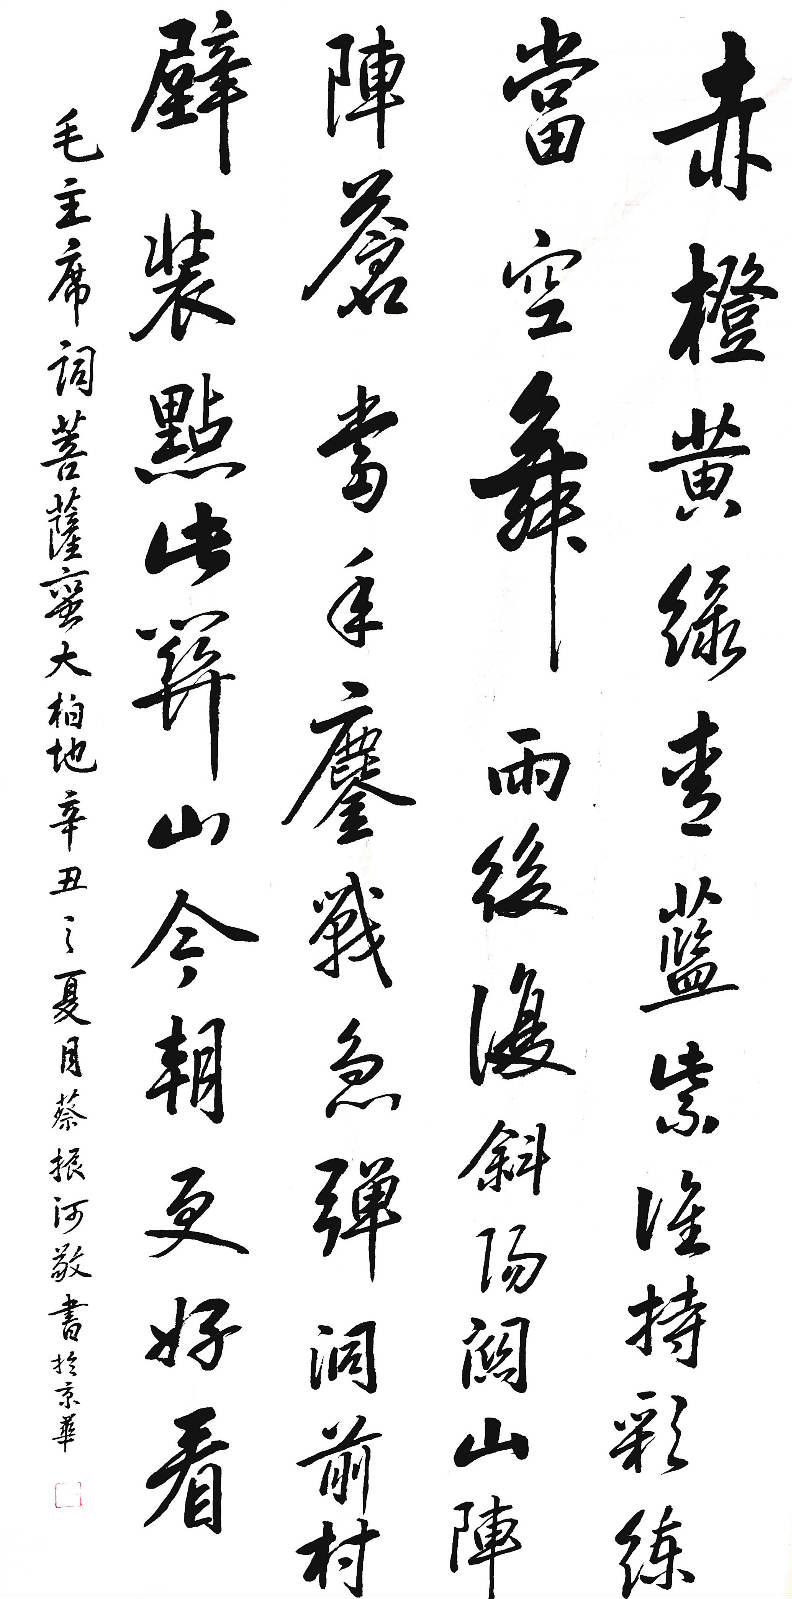 赤橙黄绿青蓝紫谁持彩练
當空舞雨後復斜阳闗山陣
陣蒼當年鏖戰急弹洞前村
壁装點此關山今朝更好看
毛主席词菩薩蛮大柏地辛丑之夏月蔡振河敬書於京華